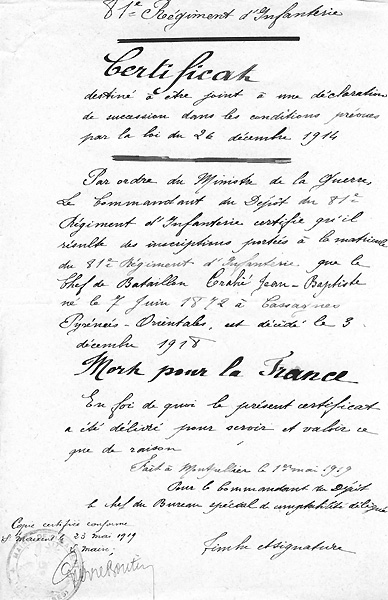 81e Régiment d'Infanterie
Certificat
destiné à être joint à une déclaration
de succession dans les conditions prévues
par la loi du 26 décembre 1914
Par ordre du Ministre de la Guerre,
Le Commandant du Dépôt du 81e
Régiment d'Infanterie certifie qu'il
résulte des inscriptions portées à la matricule
du 81e Régiment d'Infanterie que le
Chef de Bataillon Jean-Baptiste
né le 7 Juin 1872 à Cassagnes
Pyrénées-Orientales, est décédé le 3
décembre 1918
Mort pour la France
En foi de quoi le présent certificat
a été délivré pour servir et valoir ce
que de raison
Fait à Montpellier le 1er mai 1919
Pour le Commandant du Dépôt
le chef du Bureau spécial de comptabilité délégué
Timbre et signature
Copie certifiée conforme
le 23 mai 1919
maire,